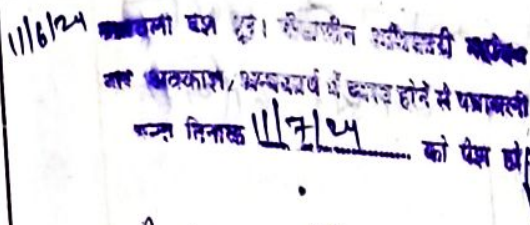 11/6/24 पत्रावली पेश हुई। पीठासीन अधिकारी महोदय
अवकाश/अन्य कार्य में व्यस्त होने से पत्रावली
दिनांक 11/7/24 को पेश हो।